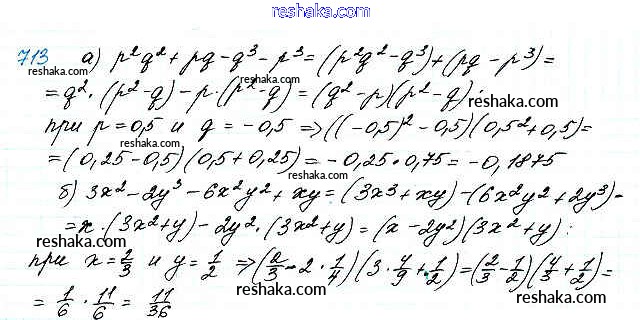 reshaka.com
713 а) p²q² + pq - q³ - p³ = (p²q² - q³) + (pq - p³) =
= q² · (p² - q) - p · (p² - q) = (q² - p)(p² - q);
при p = 0,5 и q = -0,5 ⇒ ((-0,5)² - 0,5)(0,5² + 0,5) =
= (0,25 - 0,5)(0,5 + 0,25) = -0,25 · 0,75 = -0,1875
б) 3x² - 2y³ - 6x²y² + xy = (3x³ + xy) - (6x²y² + 2y³) =
= x · (3x² + y) - 2y² · (3x² + y) = (x - 2y²)(3x² + y):
при x = 2/3 и y = 1/2 ⇒ (2/3 - 2 · 1/4)(3 · 4/9 + 1/2) = (2/3 - 1/2)(4/3 + 1/2) =
= 1/6 · 11/6 = 11/36
reshaka.com
reshaka.com
reshaka.com
reshaka.com
reshaka.com
reshaka.com
reshaka.com
reshaka.com
reshaka.com
reshaka.com
reshaka.com
reshaka.com
reshaka.com